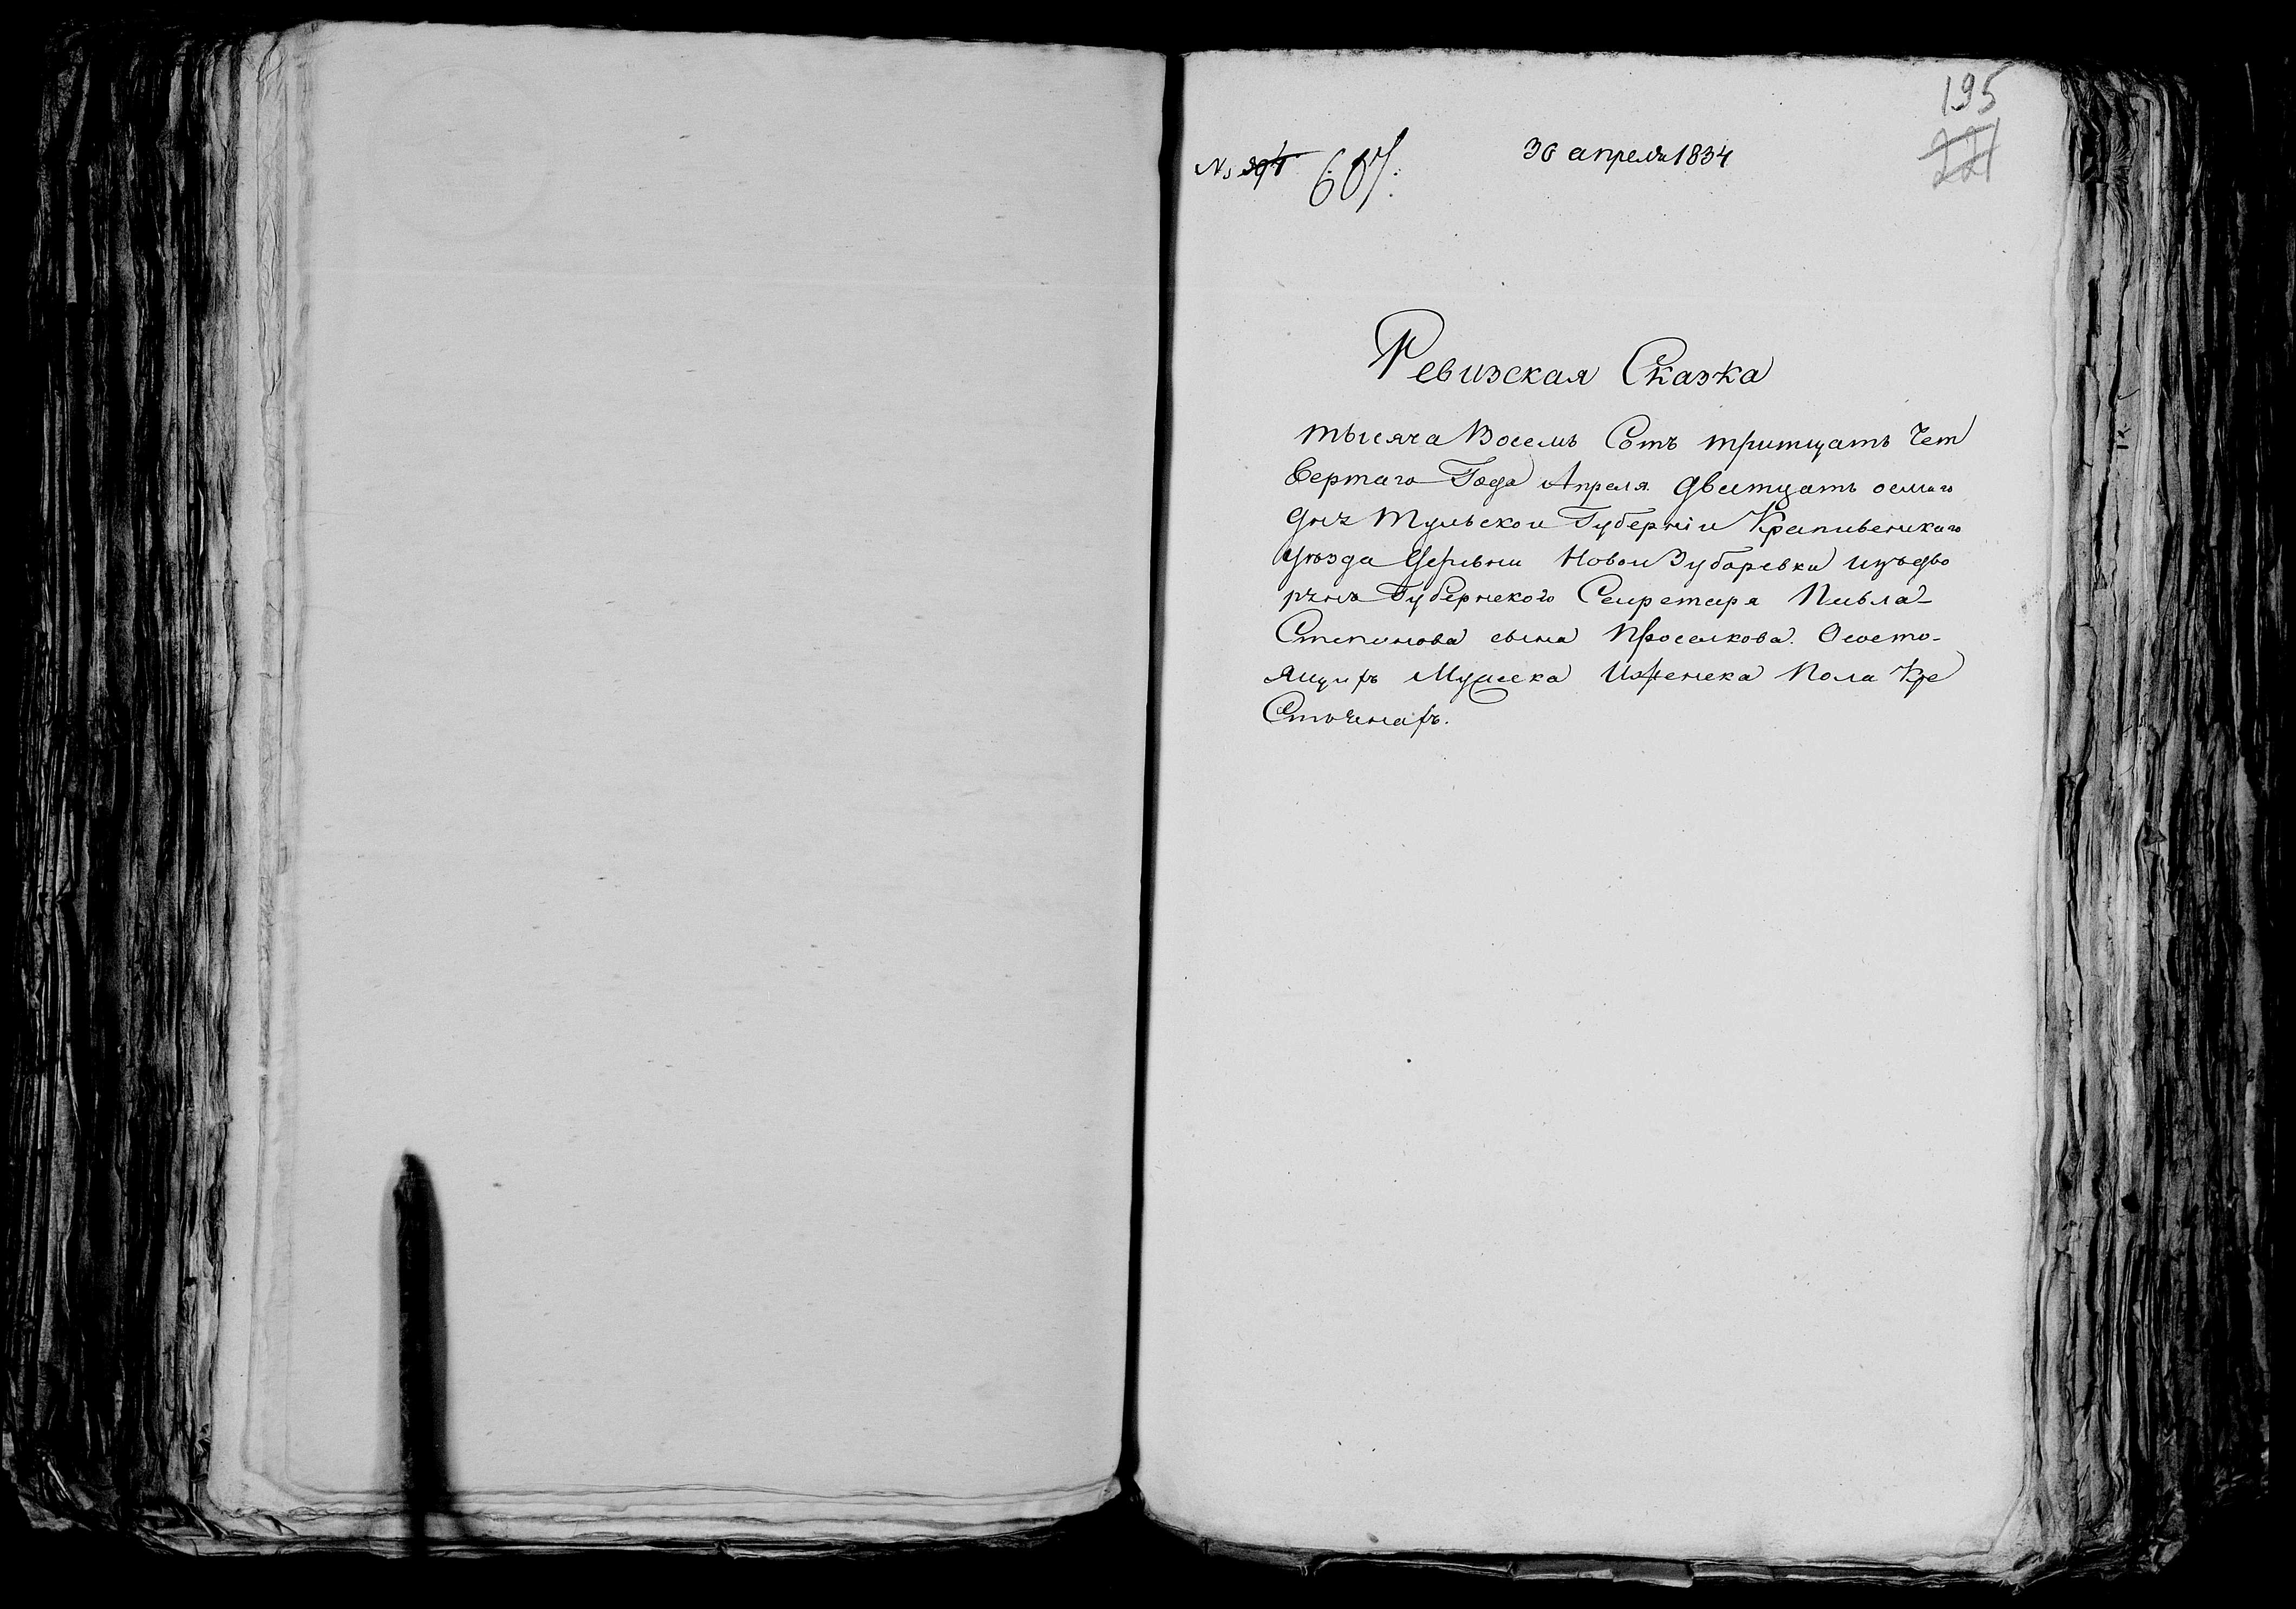 195
221
№ 607.
30 апреля 1834
Ревизская Сказка
тысяча Восемь Сотъ тритцать Чет
вертаго Года Апреля дватцать осмаго
дня Тульской Губернiи Крапивенскаго
уезда Деревни Новои Зубаревки изъ дво
рянъ Губернскаго Секретаря Павла
Степанова сына Проселкова. Ососто-
ящихъ Мужеска Иженска Пола Кре
Стьянахъ.